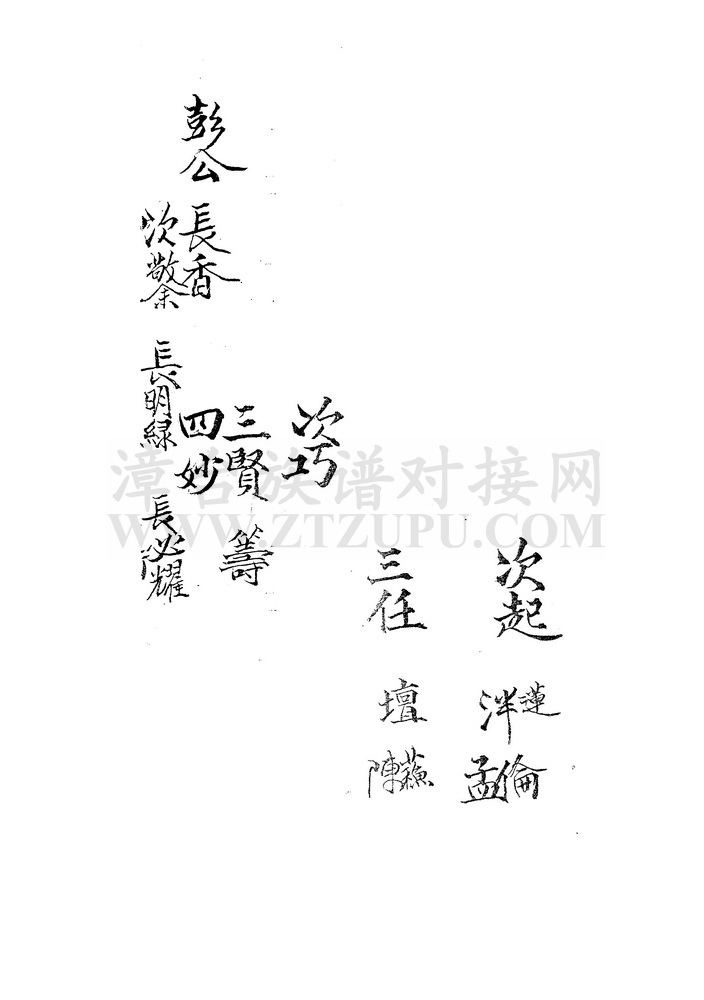 次起
蓮
泮
倫
孟
三任
壇
蘇
陳
次巧
三賢
籌
四妙
彭公
長香
次
長明緑
長必耀
漳台族谱对接网
WWW.ZTZUPU.COM